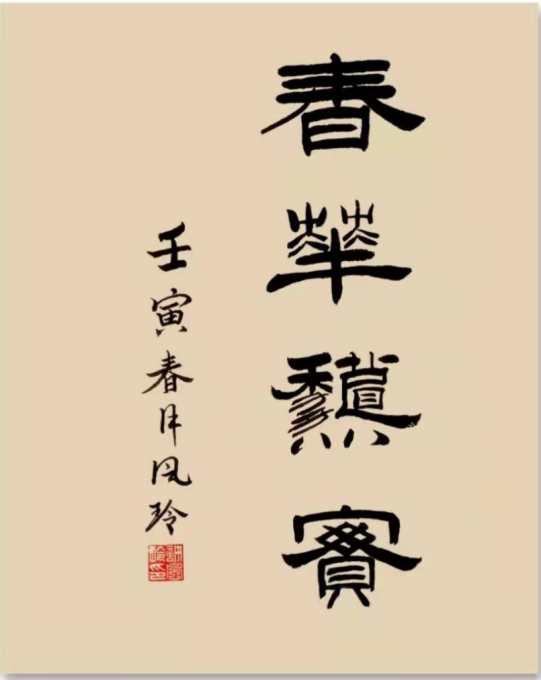 春華龝實
壬寅春月风玲